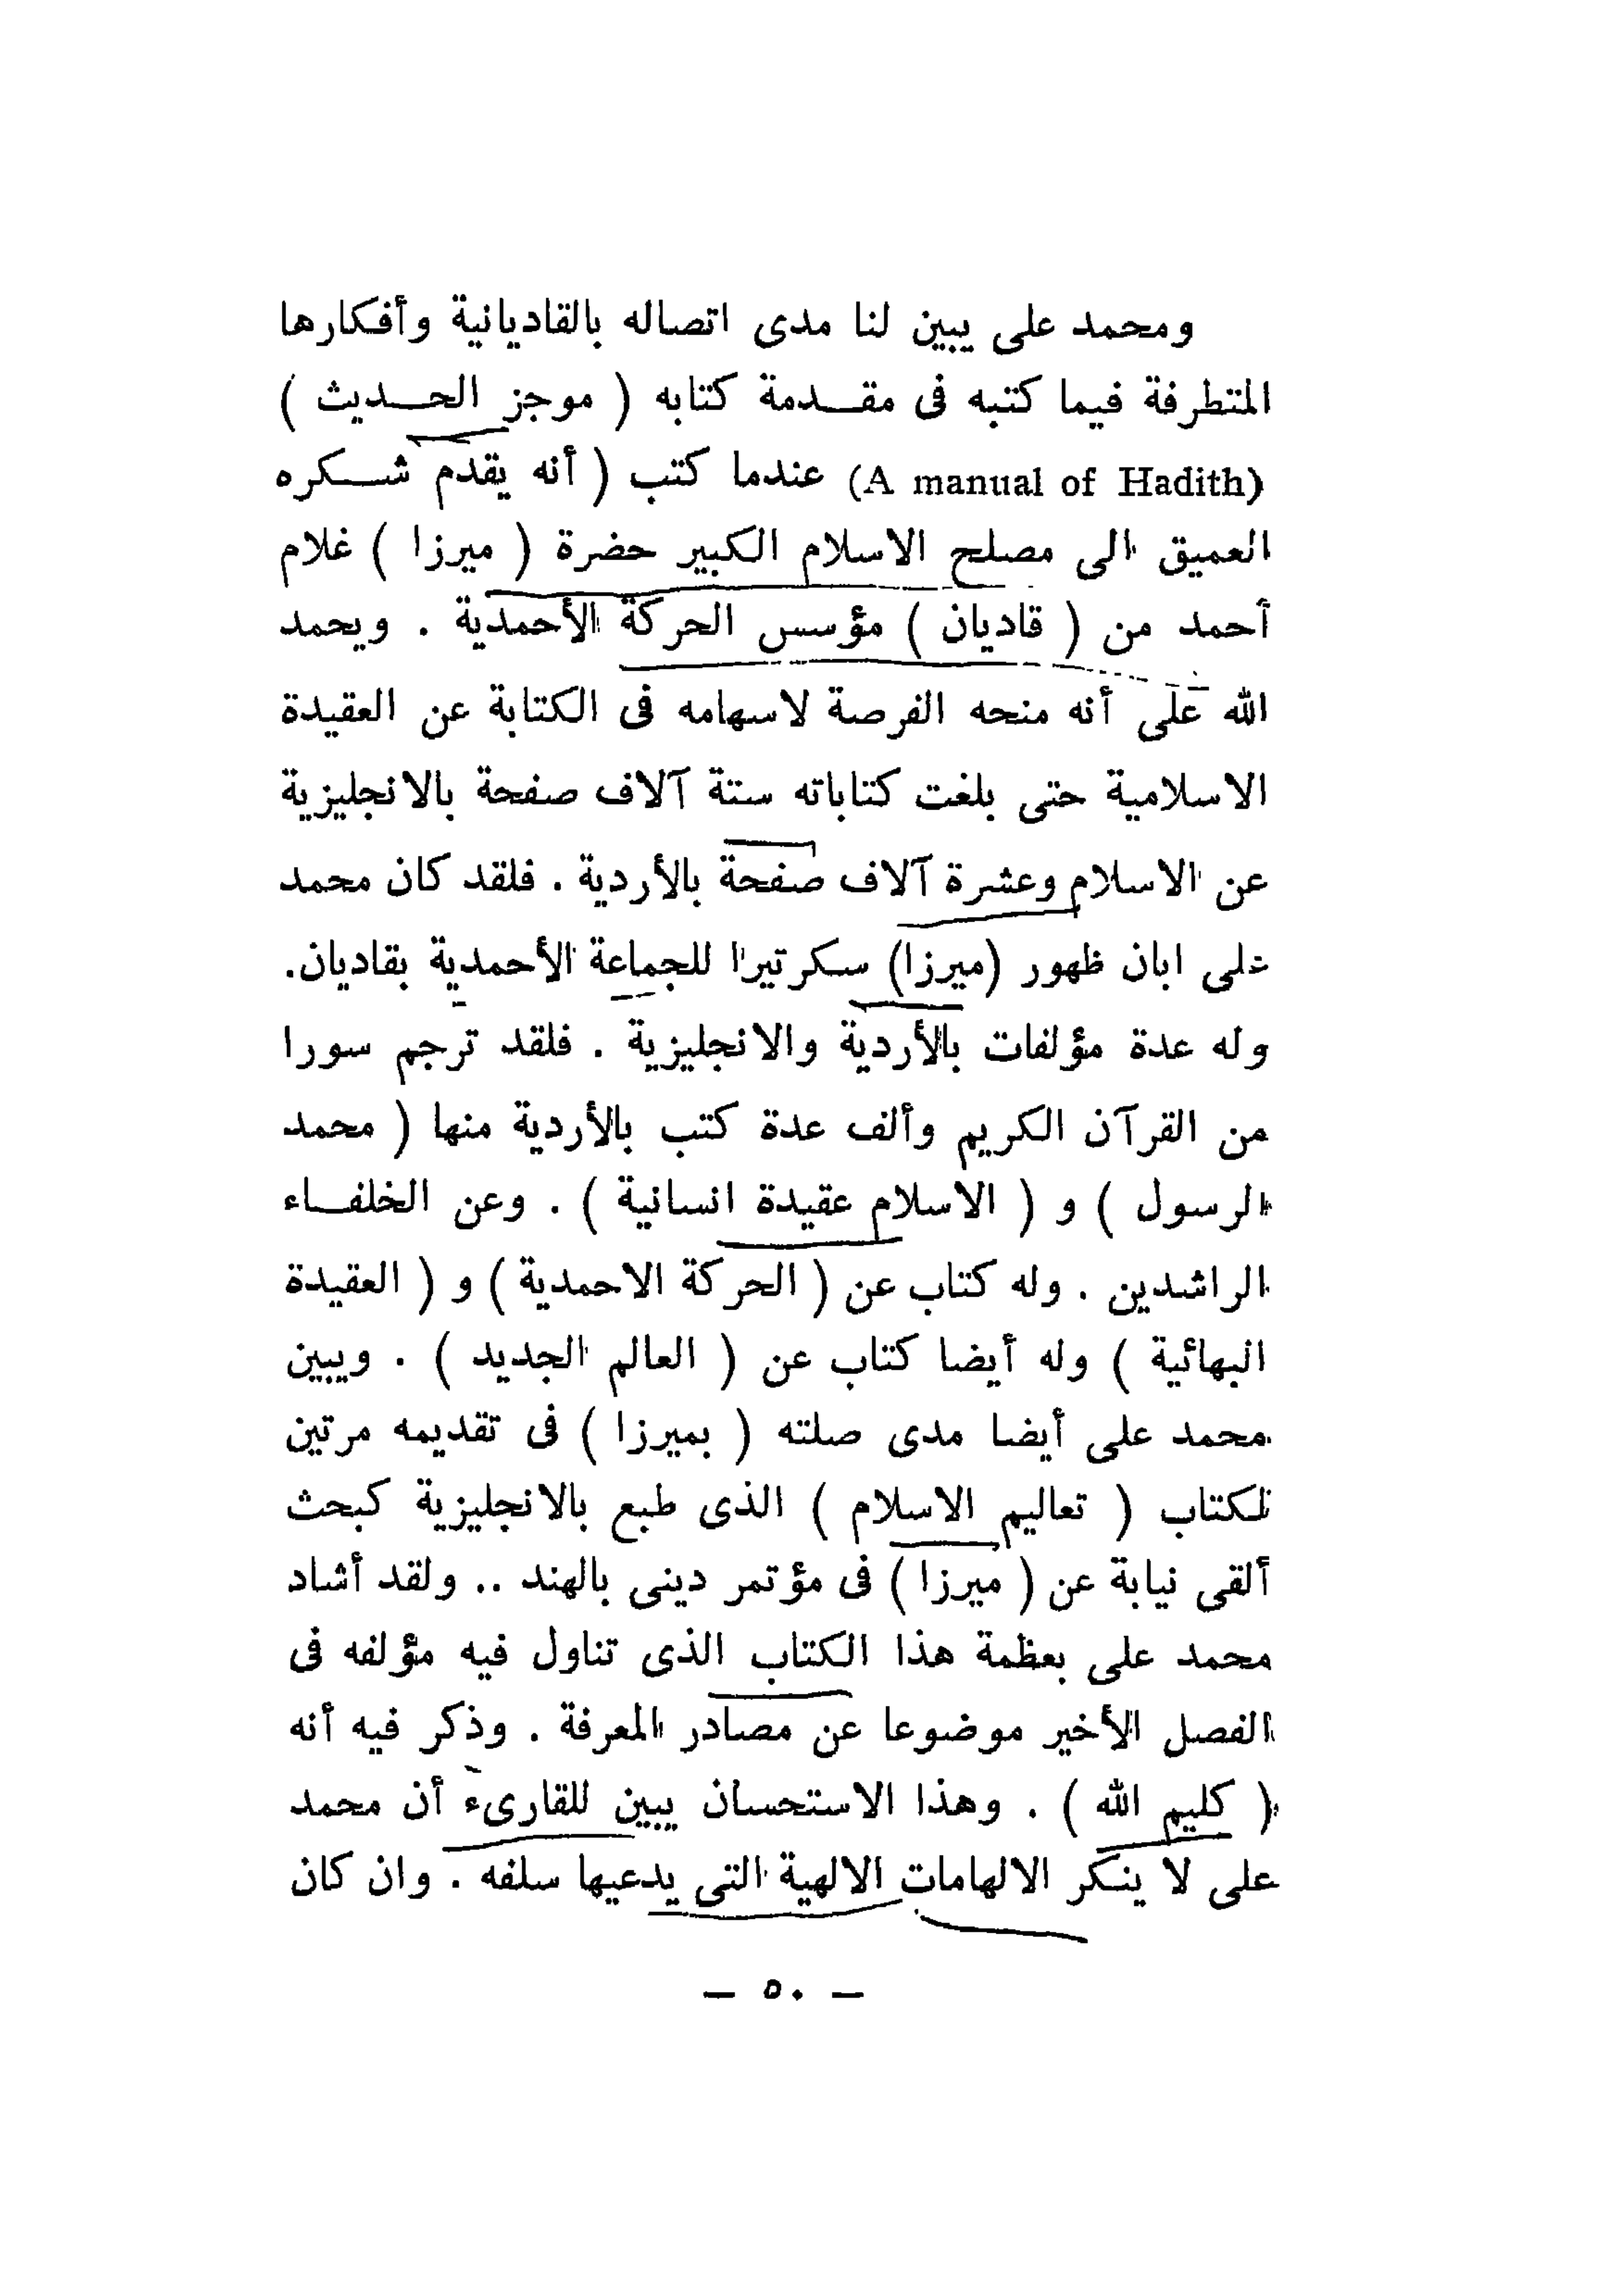 ومحمد على يبين لنا مدى اتصاله بالقاديانية وأفكارها
المتطرفة فيما كتبه فى مقدمة كتابه ( موجز الحديث )
(A manual of Hadith) عندما كتب ( أنه يقدم شكره
العميق الى مصلح الاسلام الكبير حضرة ( ميرزا ) غلام
أحمد من ( قاديان ) مؤسس الحركة الأحمدية . ويحمد
الله على أنه منحه الفرصة لاسهامه فى الكتابة عن العقيدة
الاسلامية حتى بلغت كتاباته ستة آلاف صفحة بالانجليزية
عن الاسلام وعشرة آلاف صفحة بالأردية . فلقد كان محمد
على ابان ظهور (ميرزا) سكرتيرا للجماعة الأحمدية بقاديان.
وله عدة مؤلفات بالأردية والانجليزية . فلقد ترجم سورا
من القرآن الكريم وألف عدة كتب بالأردية منها ( محمد
الرسول ) و ( الاسلام عقيدة انسانية ) . وعن الخلفاء
الراشدين . وله كتاب عن ( الحركة الاحمدية ) و ( العقيدة
البهائية ) وله أيضا كتاب عن ( العالم الجديد ) . ويبين
محمد على أيضا مدى صلته ( بميرزا ) فى تقديمه مرتين
لكتاب ( تعاليم الاسلام ) الذى طبع بالانجليزية كبحث
ألقى نيابة عن ( ميرزا ) فى مؤتمر دينى بالهند .. ولقد أشاد
محمد على بعظمة هذا الكتاب الذى تناول فيه مؤلفه فى
الفصل الأخير موضوعا عن مصادر المعرفة . وذكر فيه أنه
( كليم الله ) . وهذا الاستحسان يبين للقارىء أن محمد
على لا ينكر الالهامات الالهية التى يدعيها سلفه . وان كان
— ٥٠ —